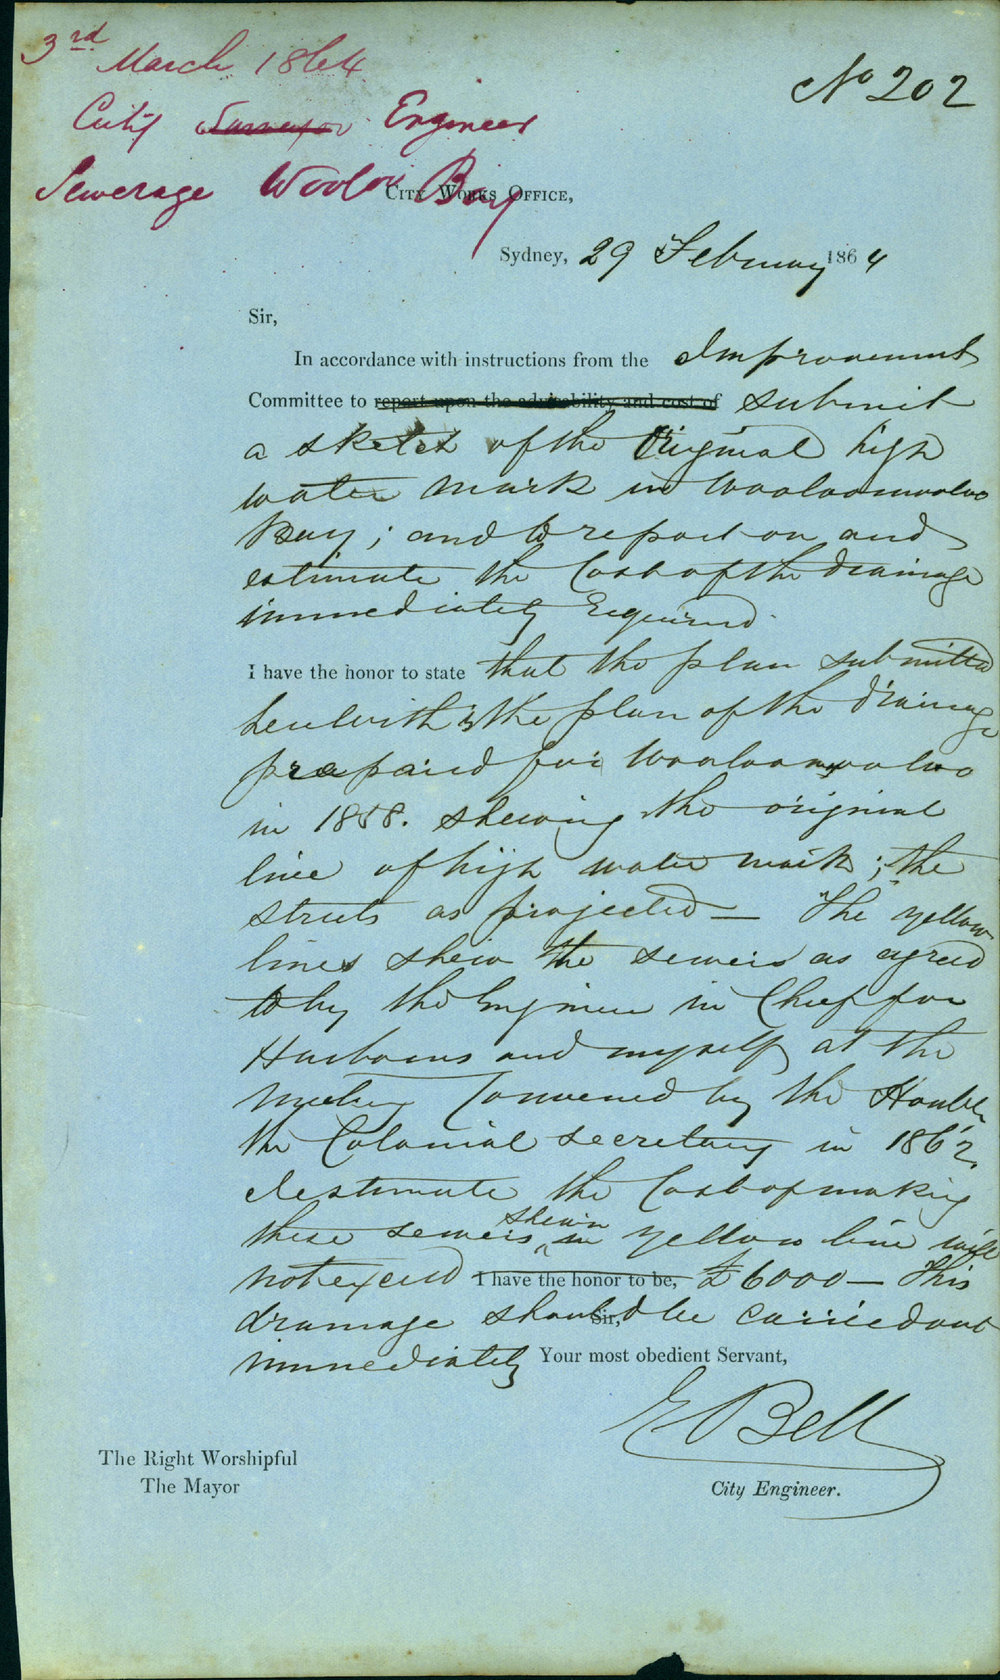 3rd March 1864
No 202
City Surveyor Engineer
Sewerage Wooloo Bay
City Works Office,
Sydney, 29 February 1864
Sir,
In accordance with instructions from the Improvement
Committee to report upon the advisability and cost of submit
a sketch of the Original high
water mark in Wooloomooloo
Bay; and to report on and
estimate the Cost of the drainage
immediately required.
I have the honor to state that the plan submitted
herewith is the plan of the drainage
prepaired for Wooloomooloo
in 1858. shewing the original
line of high water mark; the
streets as projected — The yellow
lines shew the sewers as agreed
to by the Engineer in Chief for
Harbours and myself at the
meeting Convened by the Honble
the Colonial Secretary in 1862.
I estimate the Cost of making
these sewers shewn in yellow line will
not exceed I have the honor to be, £6000 — This
drainage should be carried out
Sir,
immediately Your most obedient Servant,
E Bell
The Right Worshipful
The Mayor
City Engineer.